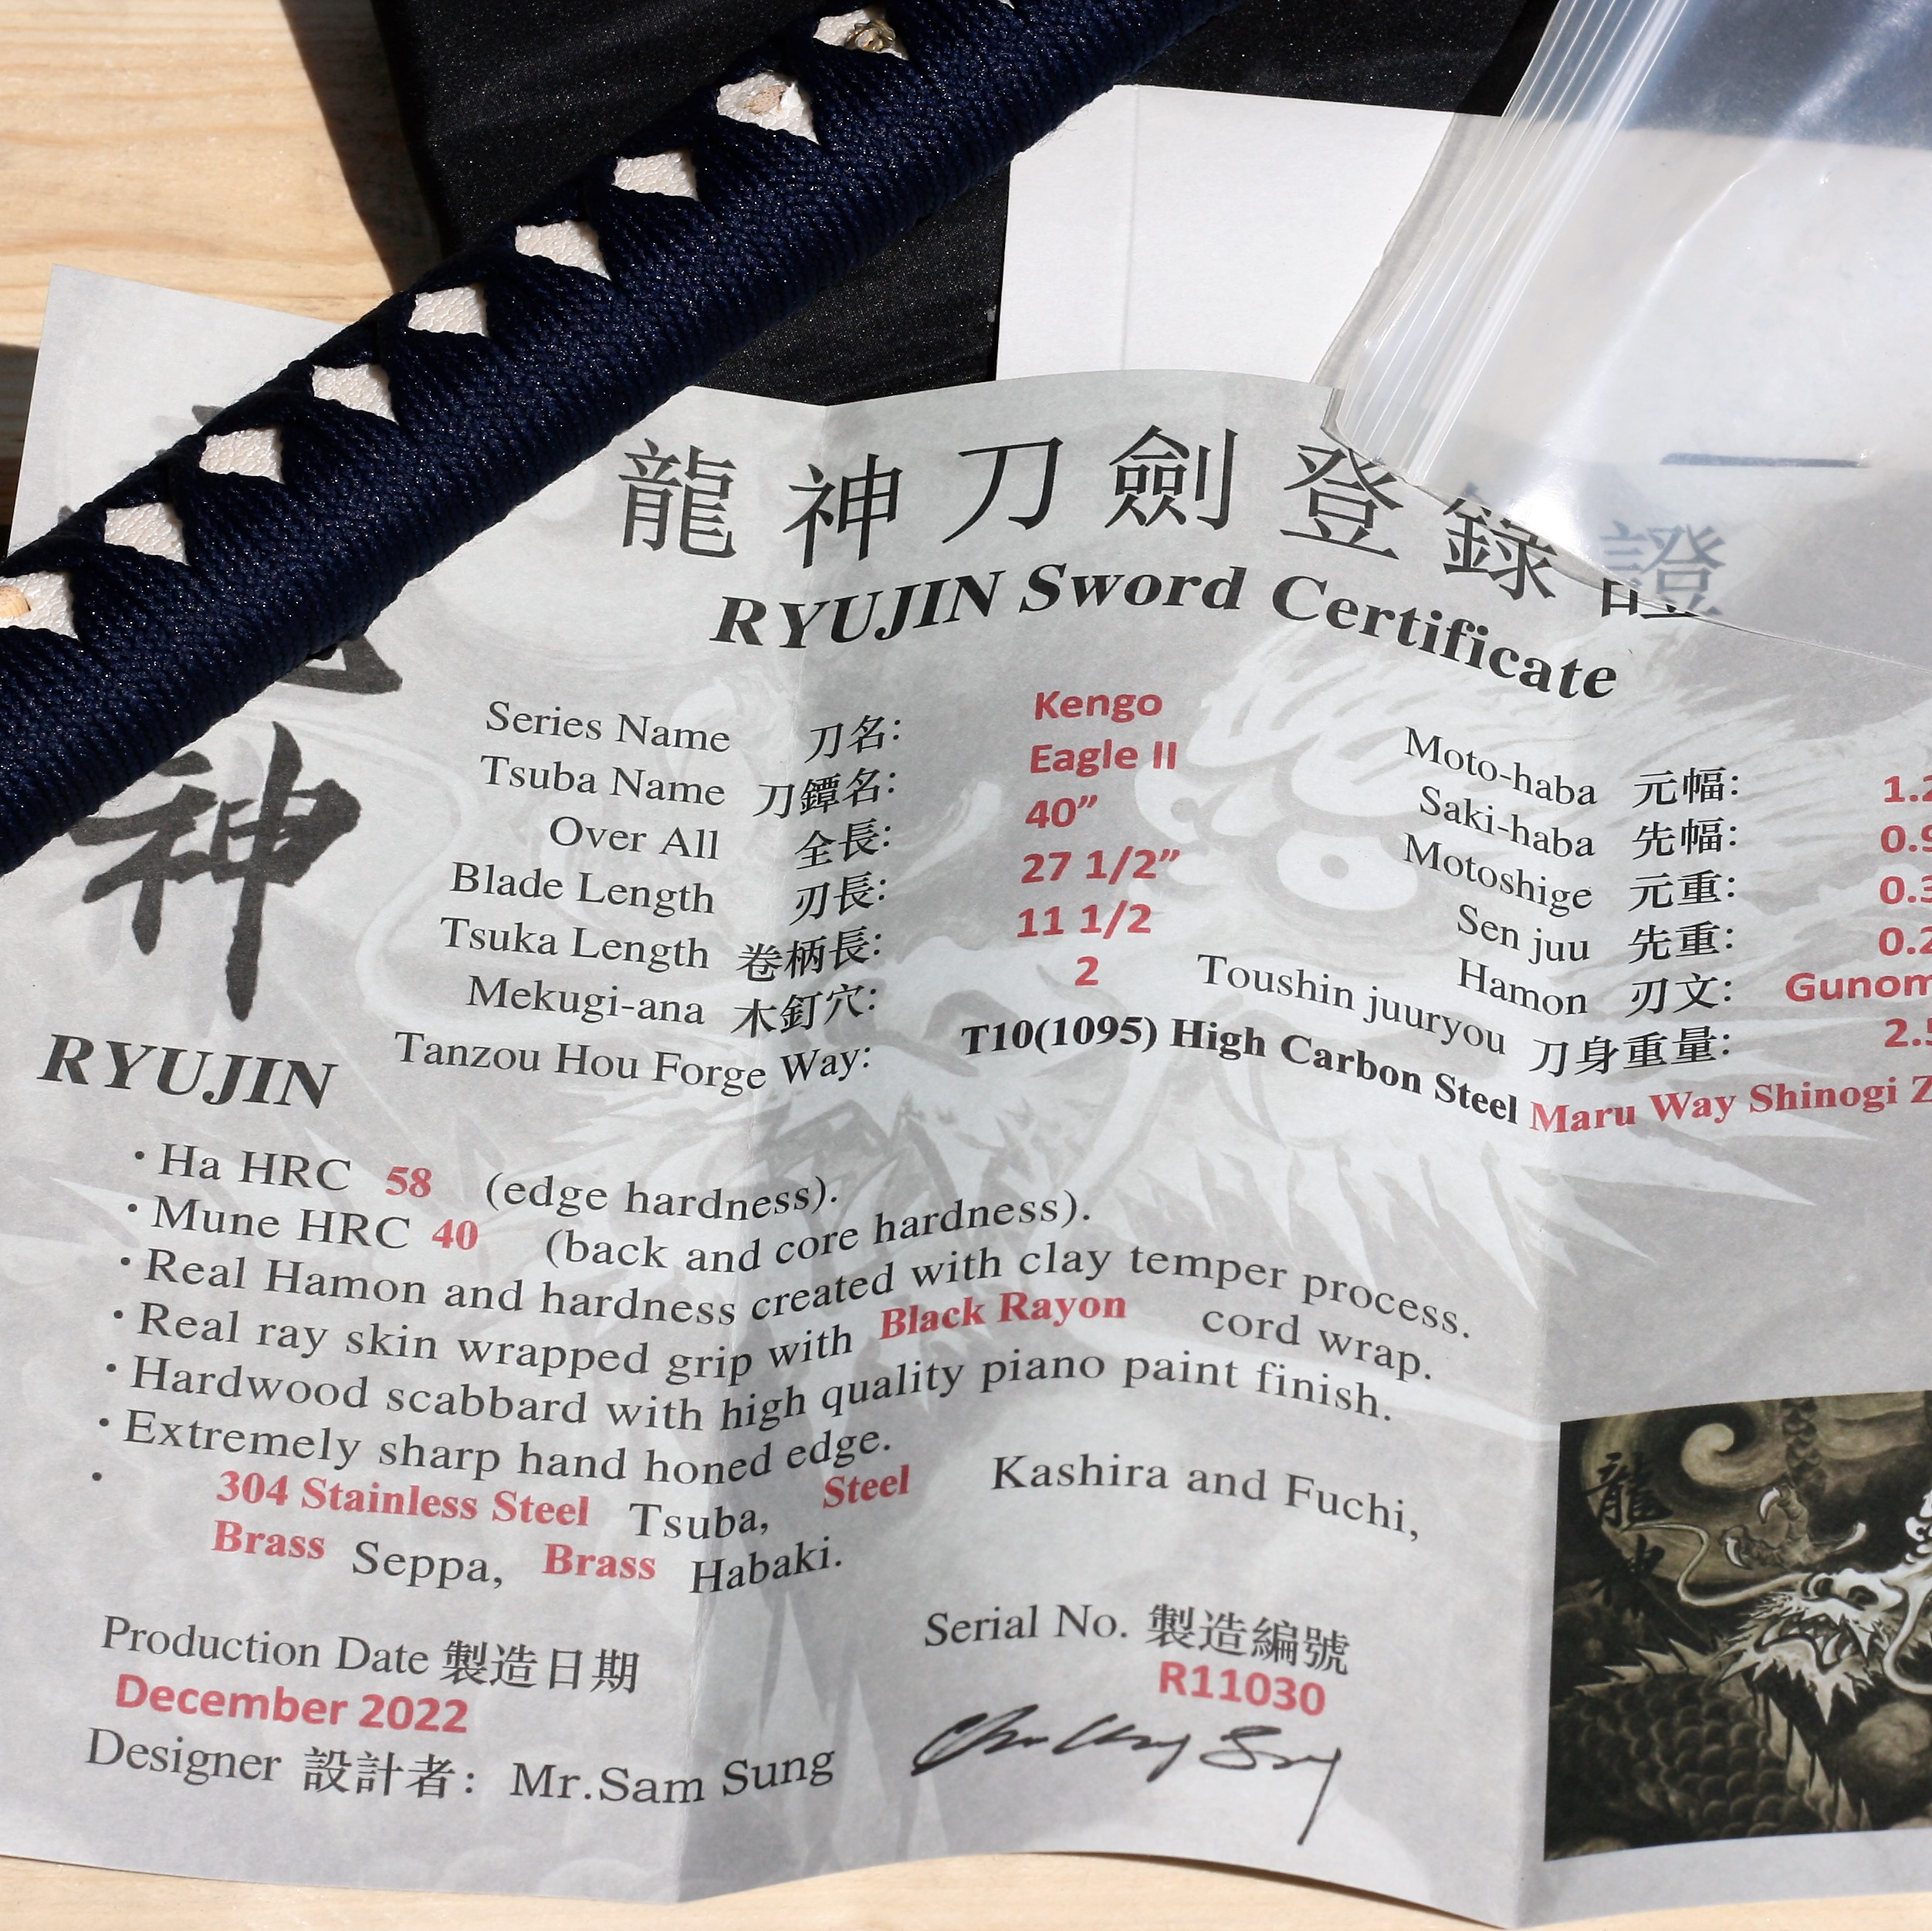 龍神刀劍登錄證
RYUJIN Sword Certificate
神
RYUJIN
Series Name 刀名: Kengo
Tsuba Name 刀鐔名: Eagle II
Over All 全長: 40”
Blade Length 刃長: 27 1/2”
Tsuka Length 卷柄長: 11 1/2
Mekugi-ana 木釘穴: 2
Moto-haba 元幅: 1.2
Saki-haba 先幅: 0.9
Motoshige 元重: 0.3
Sen juu 先重: 0.2
Hamon 刃文: Gunom
Toushin juuryou 刀身重量: 2.5
Tanzou Hou Forge Way: T10(1095) High Carbon Steel Maru Way Shinogi Z
・Ha HRC 58 (edge hardness).
・Mune HRC 40 (back and core hardness).
・Real Hamon and hardness created with clay temper process.
・Real ray skin wrapped grip with Black Rayon cord wrap.
・Hardwood scabbard with high quality piano paint finish.
・Extremely sharp hand honed edge.
・304 Stainless Steel Tsuba, Steel Kashira and Fuchi,
Brass Seppa, Brass Habaki.
Production Date 製造日期
December 2022
Serial No. 製造編號
R11030
Designer 設計者: Mr.Sam Sung
龍
神